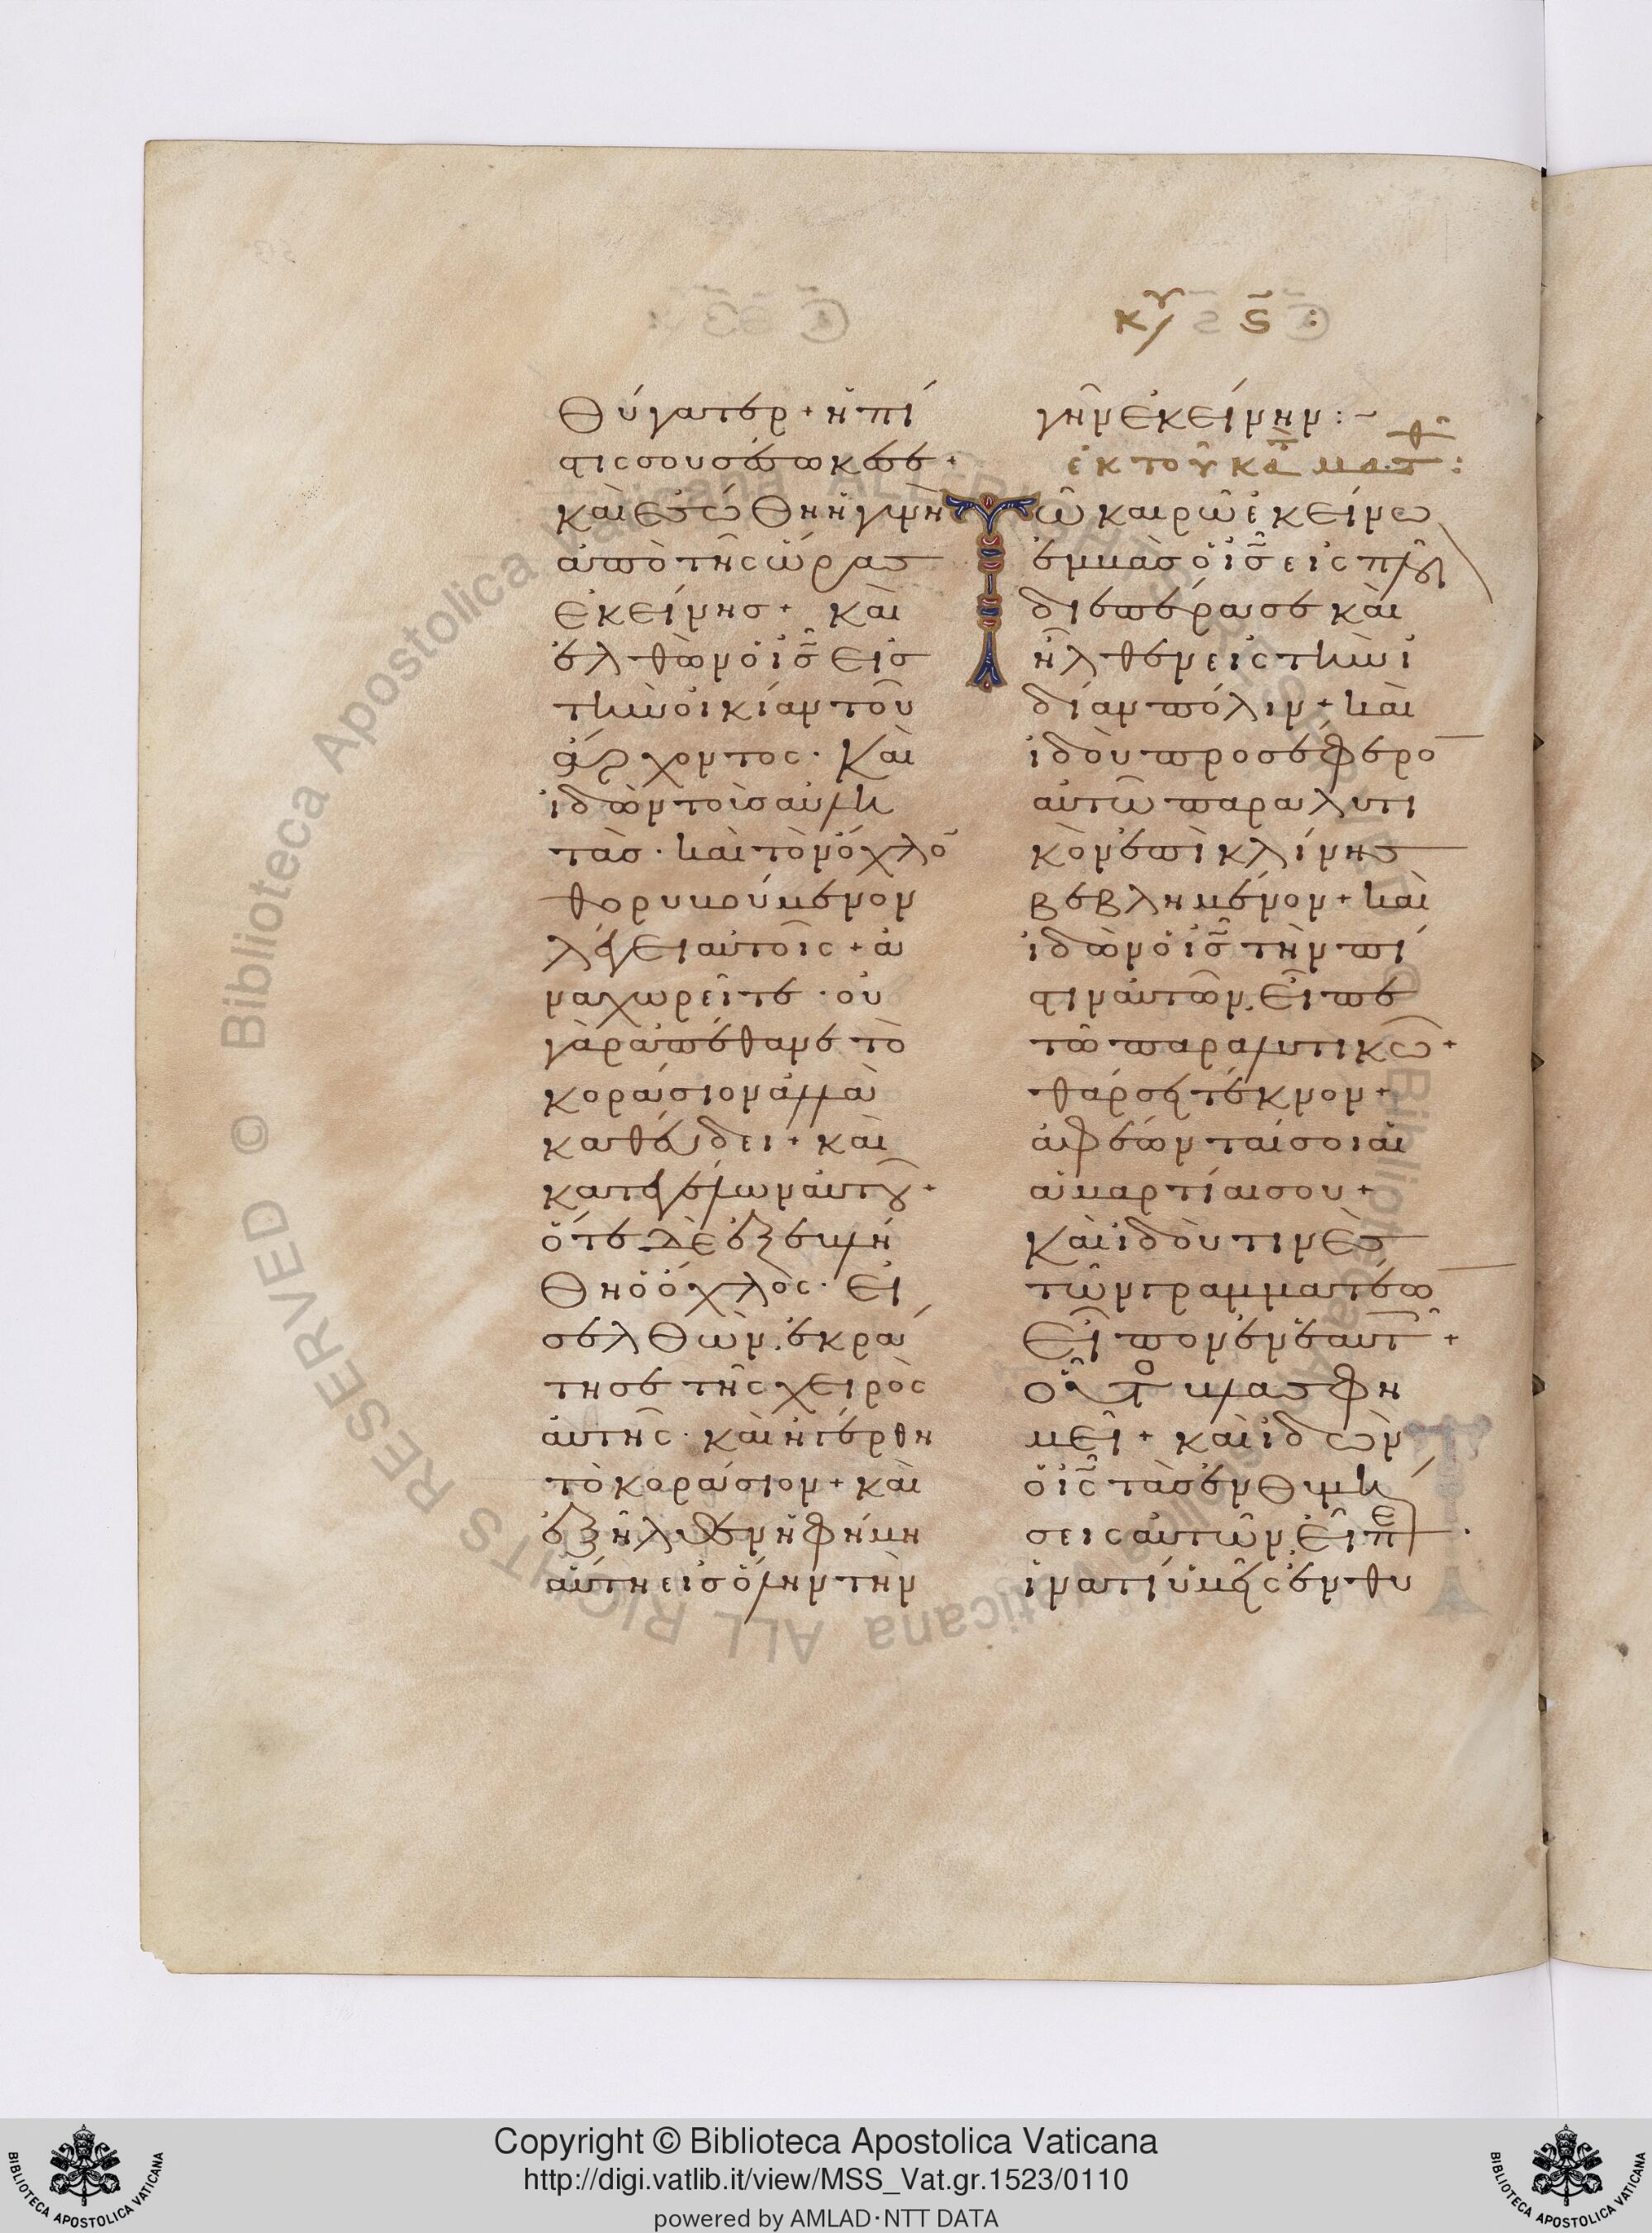 κυ ς :
θύγατερ + ἡ πί
στις σου σέσωκέ σε +
καὶ ἐσώθη ἡ γυνὴ
ἀπὸ τῆς ὥρας
ἐκείνης + καὶ
ἐλθὼν ὁ ις εἰς
τὴν οἰκίαν τοῦ
ἄρχοντος · Καὶ
ἰδὼν τοὺς αὐλη
τὰς · καὶ τὸν ὄχλο
θορυβούμενον
λέγει αὐτοῖς + ἀ
ναχωρεῖτε · οὐ
γὰρ ἀπέθανε τὸ
κοράσιον ἀλλὰ
καθεύδει + καὶ
κατεγέλων αὐτοῦ +
ὅτε δὲ ἐξεβλή
θη ὁ ὄχλος · εἰ
σελθὼν, ἐκρά
τησε τῆς χειρὸς
αὐτῆς · καὶ ἠγέρθη
τὸ κοράσιον + καὶ
ἐξῆλθεν ἡ φήμη
αὕτη εἰς ὅλην τὴν
γῆν ἐκείνην : ~
ἐκ τοῦ κατὰ ματθ :
Τῶ καιρῶ ἐκείνω
ἐμβὰς ὁ ις εἰς πλοῖ
διεπέρασε καὶ
ἦλθεν εἰς τὴν ἰ
δίαν πόλιν + καὶ
ἰδοὺ προσέφερο
αὐτῶ παραλυτι
κὸν ἐπὶ κλίνης
βεβλημένον + καὶ
ἰδὼν ὁ ις τὴν πί
στιν αὐτῶν, εἶπε
τῶ παραλυτικῶ +
θάρσει τέκνον +
ἀφέωνταί σοι αἱ
ἁμαρτίαι σου +
Καὶ ἰδού τινες
τῶν γραμματέω
εἶπον ἐν ἑαυτ +
οὗτο βλασφη
μεῖ + καὶ ἰδὼν
ὁ ις τὰς ἐνθυμή
σεις αὐτῶν, εἶπε ·
ἱνατί ὑμεῖς ἐνθυ
Copyright © Biblioteca Apostolica Vaticana
http://digi.vatlib.it/view/MSS_Vat.gr.1523/0110
powered by AMLAD·NTT DATA
BIBLIOTECA APOSTOLICA VATICANA
BIBLIOTECA APOSTOLICA VATICANA
© Biblioteca Apostolica Vaticana ALL RIGHTS RESERVED
© Biblioteca Apostolica Vaticana ALL RIGHTS RESERVED